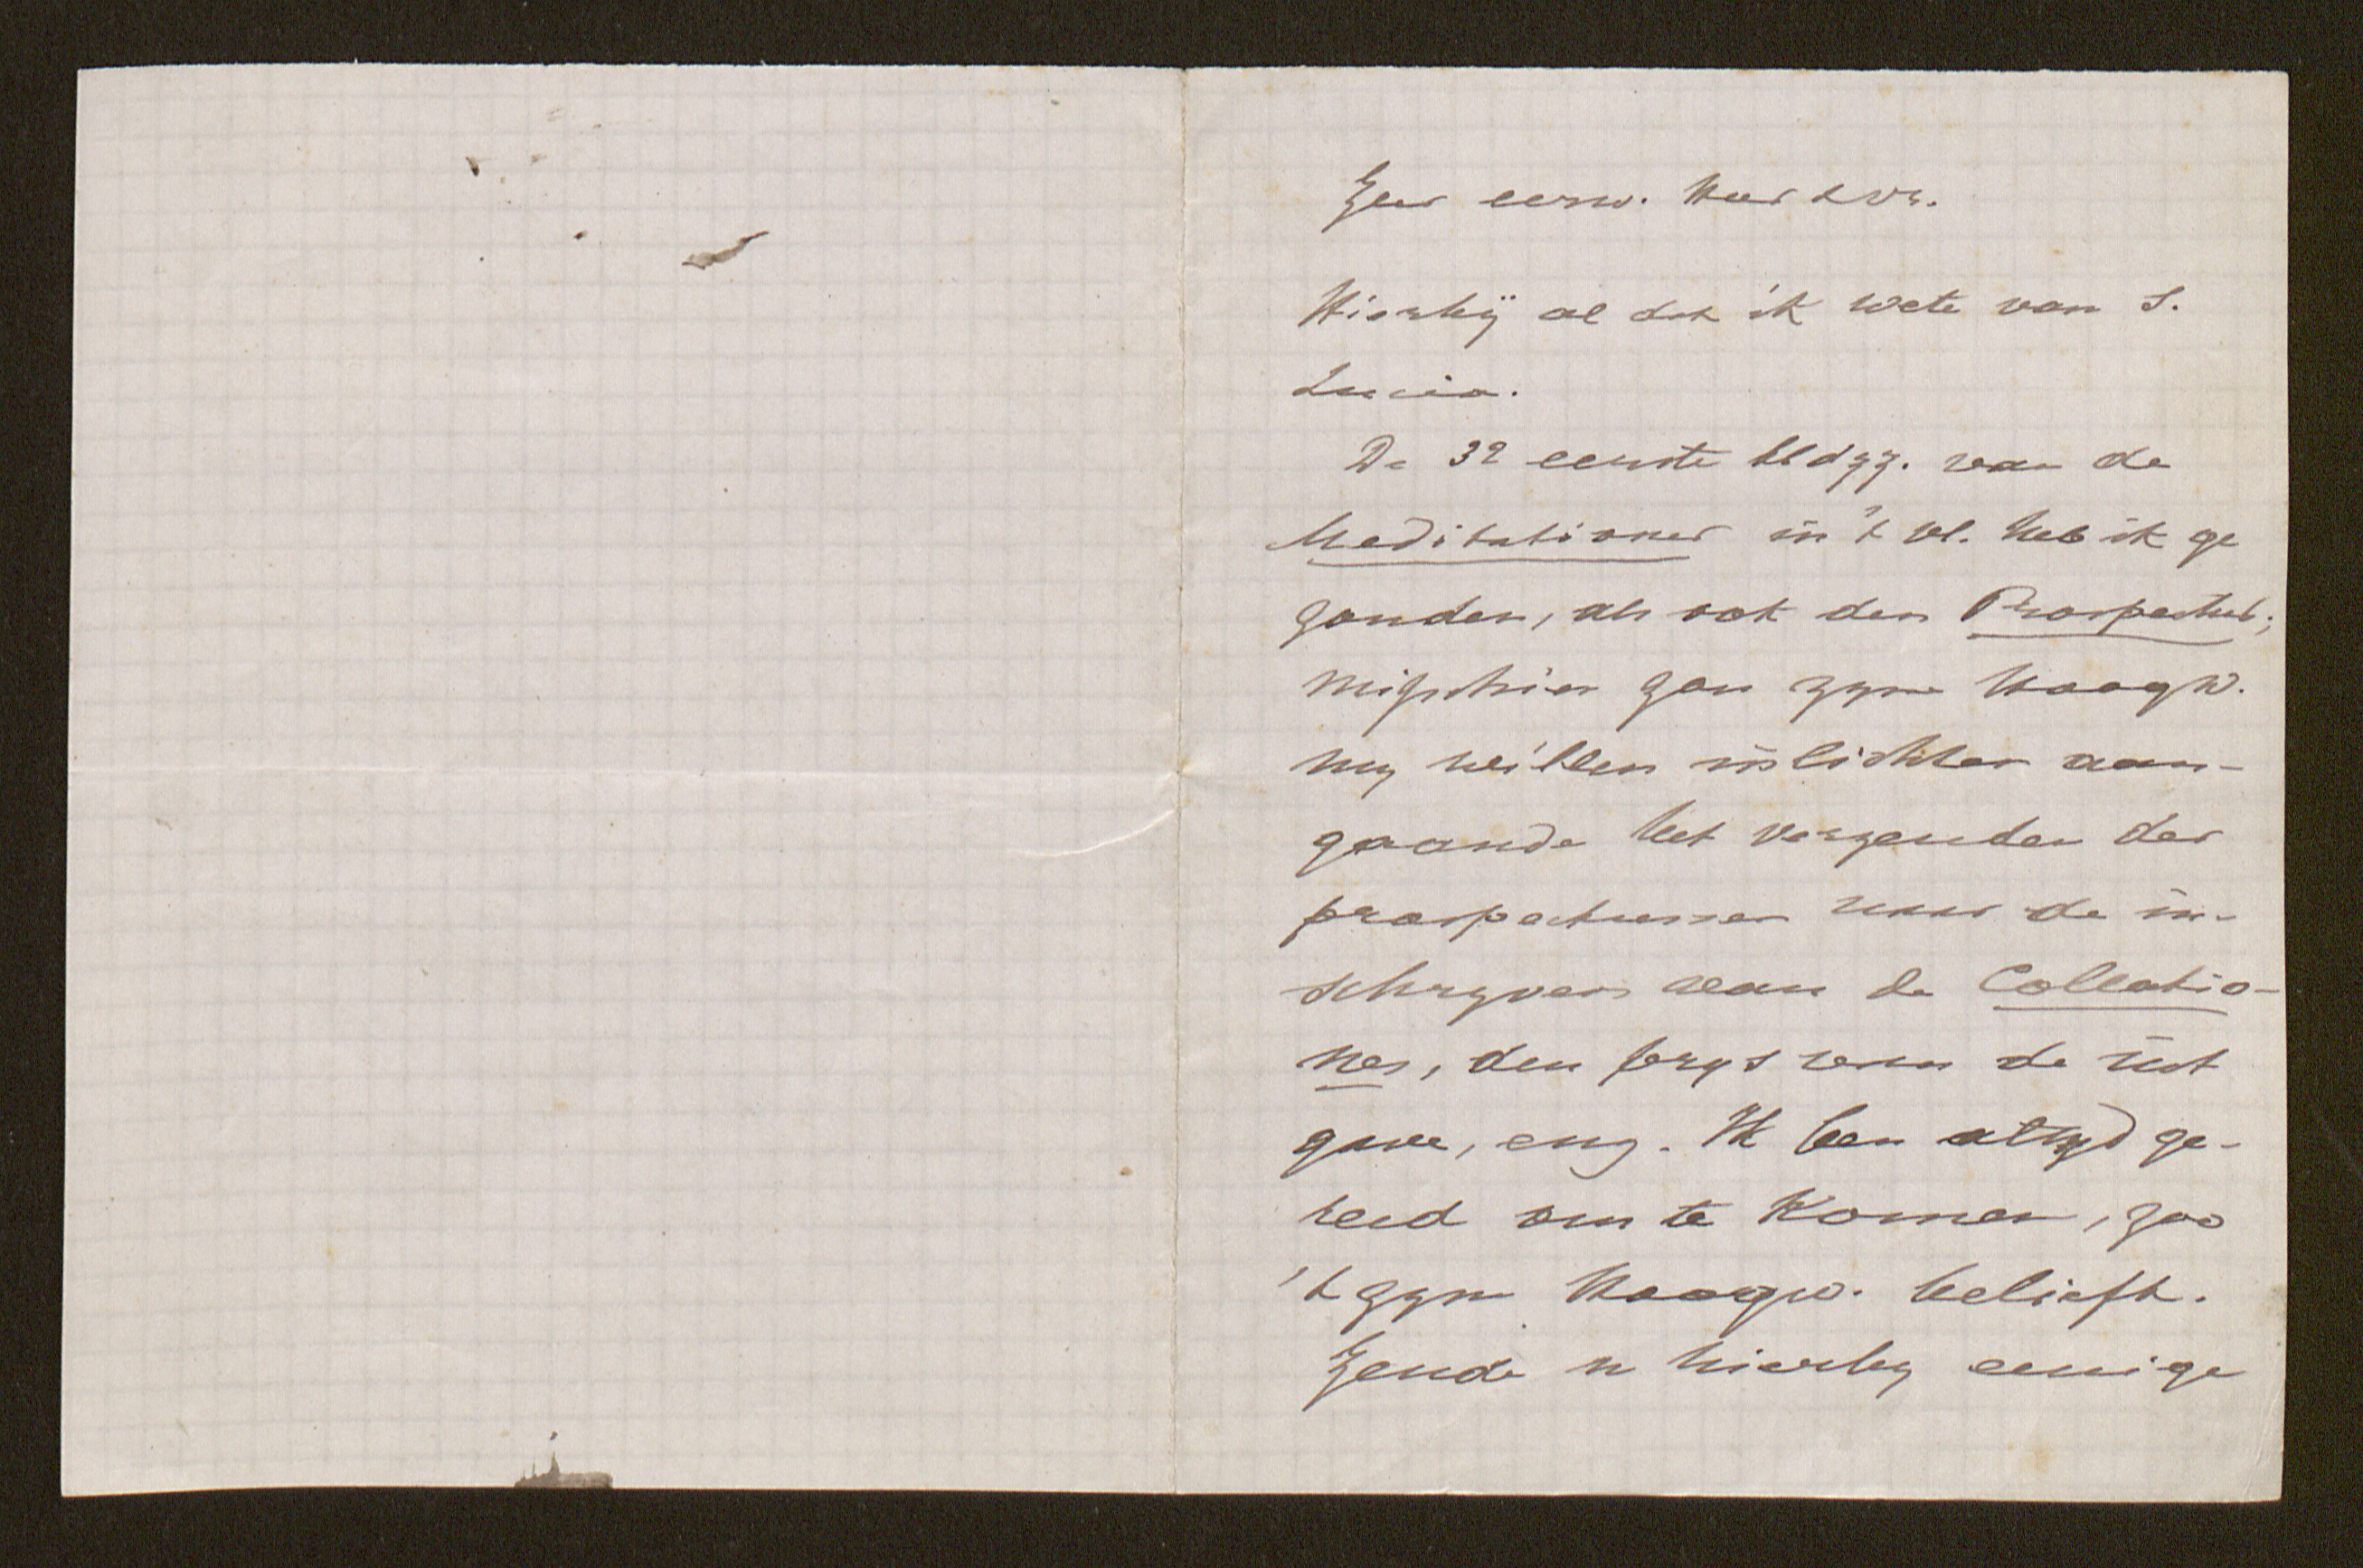 Zeer eerw. Heer & vr.
Hierbÿ al dat ik wete van S.
Lucia.
De 32 eerste bldzz. van de
Meditationes in 't vl. heb ik ge
zonden, als ook den Prospectus;
misschien zou zyne Hoogw.
my willen inlichten aan-
gaande het verzenden der
prospectussen naar de in-
schryvers van de Collatio-
nes, den prys van de uit
gave, enz. Ik ben altyd ge-
reed om te komen, zoo
't zyne Hoogw. belieft.
Zende u hierby eenige